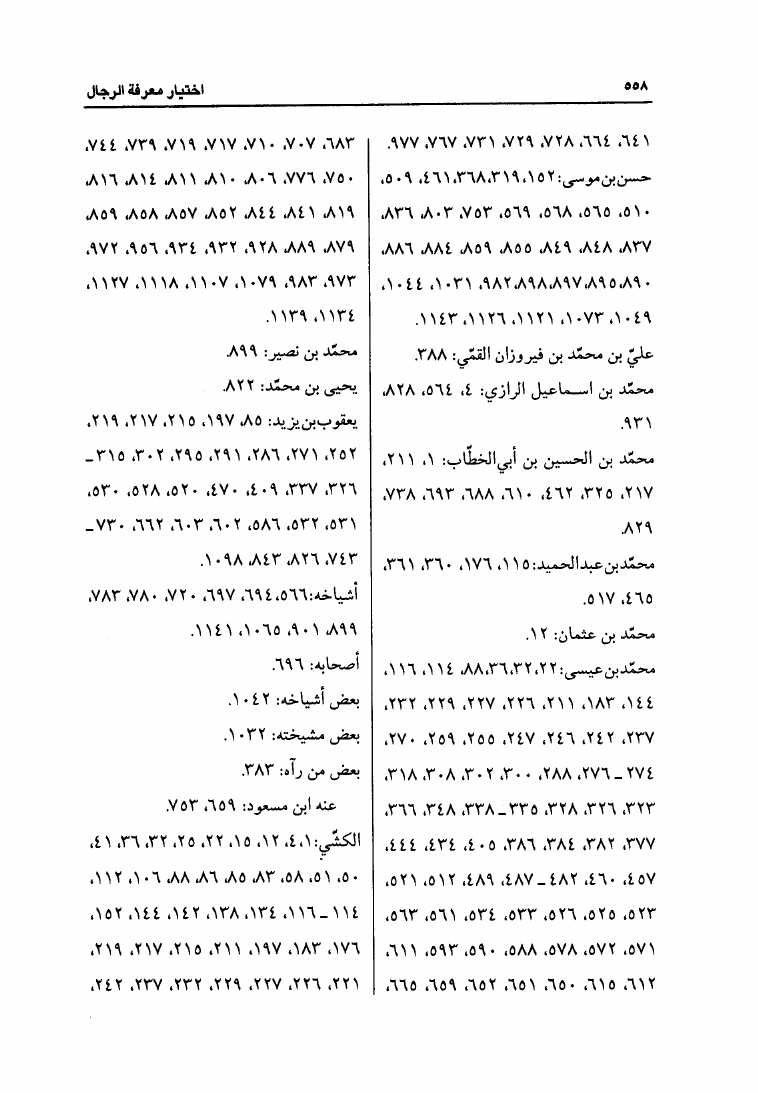 ٥٥٨
اختيار معرفة الرجال
٦٤١، ٦٦٤، ٧٢٨، ٧٢٩، ٧٣١، ٧٦٧، ٩٧٧.
حسن بن موسى: ١٥٢، ٣١٩، ٣٦٨، ٤٦١، ٥٠٩،
٥١٠، ٥٦٥، ٥٦٨، ٥٦٩، ٧٥٣، ٨٠٣، ٨٣٦،
٨٣٧، ٨٤٨، ٨٤٩، ٨٥٥، ٨٥٩، ٨٨٤، ٨٨٦،
٨٩٠، ٨٩٥، ٨٩٧، ٨٩٨، ٩٨٢، ١٠٣١، ١٠٤٤،
١٠٤٩، ١٠٧٣، ١١٢١، ١١٢٦، ١١٤٣.
عليّ بن محمّد بن فيروزان القمّي: ٣٨٨.
محمّد بن اسماعيل الرازي: ٤، ٥٦٤، ٨٢٨،
٩٣١.
محمّد بن الحسين بن أبي الخطّاب: ١، ٢١١،
٢١٧، ٣٢٥، ٤٦٢، ٦١٠، ٦٨٨، ٦٩٣، ٧٣٨،
٨٢٩.
محمّد بن عبدالحميد: ١١٥، ١٧٦، ٣٦٠، ٣٦١،
٤٦٥، ٥١٧.
محمّد بن عثمان: ١٢.
محمّد بن عيسى: ٢٢، ٣٢، ٣٦، ٨٨، ١١٤، ١١٦،
١٤٤، ١٨٣، ٢١١، ٢٢٦، ٢٢٧، ٢٢٩، ٢٣٢،
٢٣٧، ٢٤٢، ٢٤٦، ٢٤٧، ٢٥٥، ٢٥٩، ٢٧٠،
٢٧٤ ـ ٢٧٦، ٢٨٨، ٣٠٠، ٣٠٢، ٣٠٨، ٣١٨،
٣٢٣، ٣٢٦، ٣٢٨، ٣٣٥ ـ ٣٣٨، ٣٤٨، ٣٦٦،
٣٧٧، ٣٨٢، ٣٨٤، ٣٨٦، ٤٠٥، ٤٣٤، ٤٤٤،
٤٥٧، ٤٦٠، ٤٨٢ ـ ٤٨٧، ٤٨٩، ٥١٢، ٥٢١،
٥٢٣، ٥٢٥، ٥٢٦، ٥٣٣، ٥٣٤، ٥٦١، ٥٦٣،
٥٧١، ٥٧٢، ٥٧٨، ٥٨٨، ٥٩٠، ٥٩٣، ٦١١،
٦١٢، ٦١٥، ٦٥٠، ٦٥١، ٦٥٢، ٦٥٩، ٦٦٥،
٦٨٣، ٧٠٧، ٧١٠، ٧١٧، ٧١٩، ٧٣٩، ٧٤٤،
٧٥٠، ٧٧٦، ٨٠٦، ٨١٠، ٨١١، ٨١٤، ٨١٦،
٨١٩، ٨٤١، ٨٤٤، ٨٥٢، ٨٥٧، ٨٥٨، ٨٥٩،
٨٧٩، ٨٨٩، ٩٢٨، ٩٣٢، ٩٣٤، ٩٥٦، ٩٧٢،
٩٧٣، ٩٨٣، ١٠٧٩، ١١٠٧، ١١١٨، ١١٢٧،
١١٣٤، ١١٣٩.
محمّد بن نصير: ٨٩٩.
يحيى بن محمّد: ٨٢٢.
يعقوب بن يزيد: ٨٥، ١٩٧، ٢١٥، ٢١٧، ٢١٩،
٢٥٢، ٢٧١، ٢٨٦، ٢٩١، ٢٩٥، ٣٠٢، ٣١٥ ـ
٣٢٦، ٣٣٧، ٤٠٩، ٤٧٠، ٥٢٠، ٥٢٨، ٥٣٠،
٥٣١، ٥٣٢، ٥٨٦، ٦٠٢، ٦٠٣، ٦٦٢، ٧٣٠ ـ
٧٤٣، ٨٢٦، ٨٤٣، ١٠٩٨.
أشياخه: ٥٦٦، ٦٩٤، ٦٩٧، ٧٢٠، ٧٨٠، ٧٨٣،
٨٩٩، ٩٠١، ١٠٦٥، ١١٤١.
أصحابه: ٦٩٦.
بعض أشياخه: ١٠٤٢.
بعض مشيخته: ١٠٣٢.
بعض من رآه: ٣٨٣.
عنه ابن مسعود: ٦٥٩، ٧٥٣.
الكشّي: ١، ٤، ١٢، ١٥، ٢٢، ٢٥، ٣٢، ٣٦، ٤١،
٥٠، ٥١، ٥٨، ٨٣، ٨٥، ٨٦، ٨٨، ١٠٦، ١١٢،
١١٤ ـ ١١٦، ١٣٤، ١٣٨، ١٤٢، ١٤٤، ١٥٢،
١٧٦، ١٨٣، ١٩٧، ٢١١، ٢١٥، ٢١٧، ٢١٩،
٢٢١، ٢٢٦، ٢٢٧، ٢٢٩، ٢٣٢، ٢٣٧، ٢٤٢،